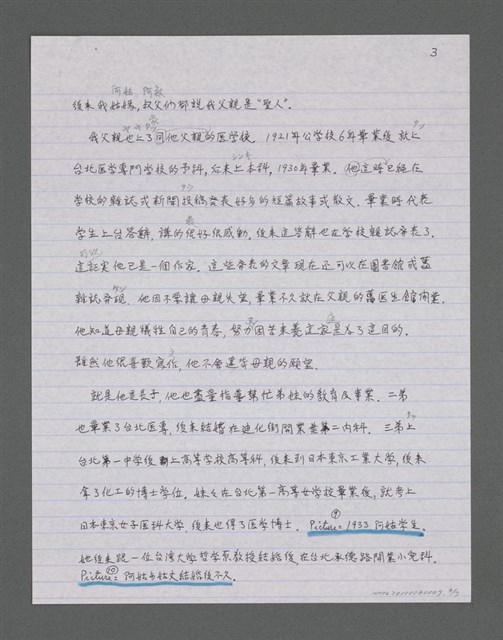 3
阿姑 阿叔
後来我姑媽,叔父們都説我父親是“聖人”.
我父親也上了同他父親的医学校. 1921年公学校6年畢業後就上
台北医学専門学校的予科,后来上本科,1930年畢業. 他這時已経在
学校的雜誌或新聞投稿発表好多的短篇故事或散文. 畢業時代表
学生上台答辞,講的很好很感動,後来這答辞也在学校雜誌発表了.
這証実他已是一個作家. 這些発表的文章現在还可以在図書館或舊
雜誌発現. 他因不要讓母親失望,畢業不久就在父親的舊医生館開業.
他知道母親犠牲自己的青春,努力困苦来養這家是為了這目的.
雖然他很喜歓寫作,他不會違背母親的願望.
就是他是長子,他也盡量指導幇忙弟妹的教育及事業. 二弟
也畢業了台北医専,後来結婚在迪化街開業並第二内科. 三弟上
台北第一中学後上高等学校高等科,後来到日本東京工業大学,後来
拿了化工的博士学位. 妹々在台北第一高等女学校畢業後,就考上
日本東京女子医科大学,後来也得了医学博士. Picture⑨=1933 阿姑学生.
她後来跟一位台湾大学哲学系教授結婚後,在台北承德路開業小児科.
Picture⑩= 阿姑与姑丈結婚後不久.